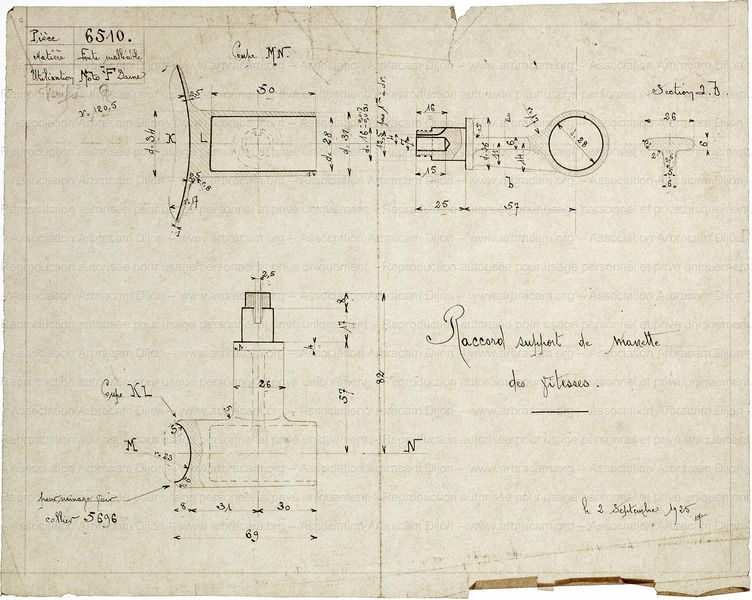 Pièce 6510.
Matière Fonte malléable
Utilisation Moto "F" Dame
r. 120,5
Coupe MN.
50
d. 34
K
L
d. 28
d. 31
r. 17
16
15
25
57
d. 28
14
11
6
b
Section a.b
26
6
2
5
6
2,5
8
17
4
57
82
26
5
Coupe KL
M
N
r. 23
pour usinage voir
collier 5696
8
31
30
69
Raccord support de manette
des vitesses.
le 2 Septembre 1925
Reproduction autorisée pour usage personnel et privé uniquement
www.arbracam.org -- Association Arbracam Dijon